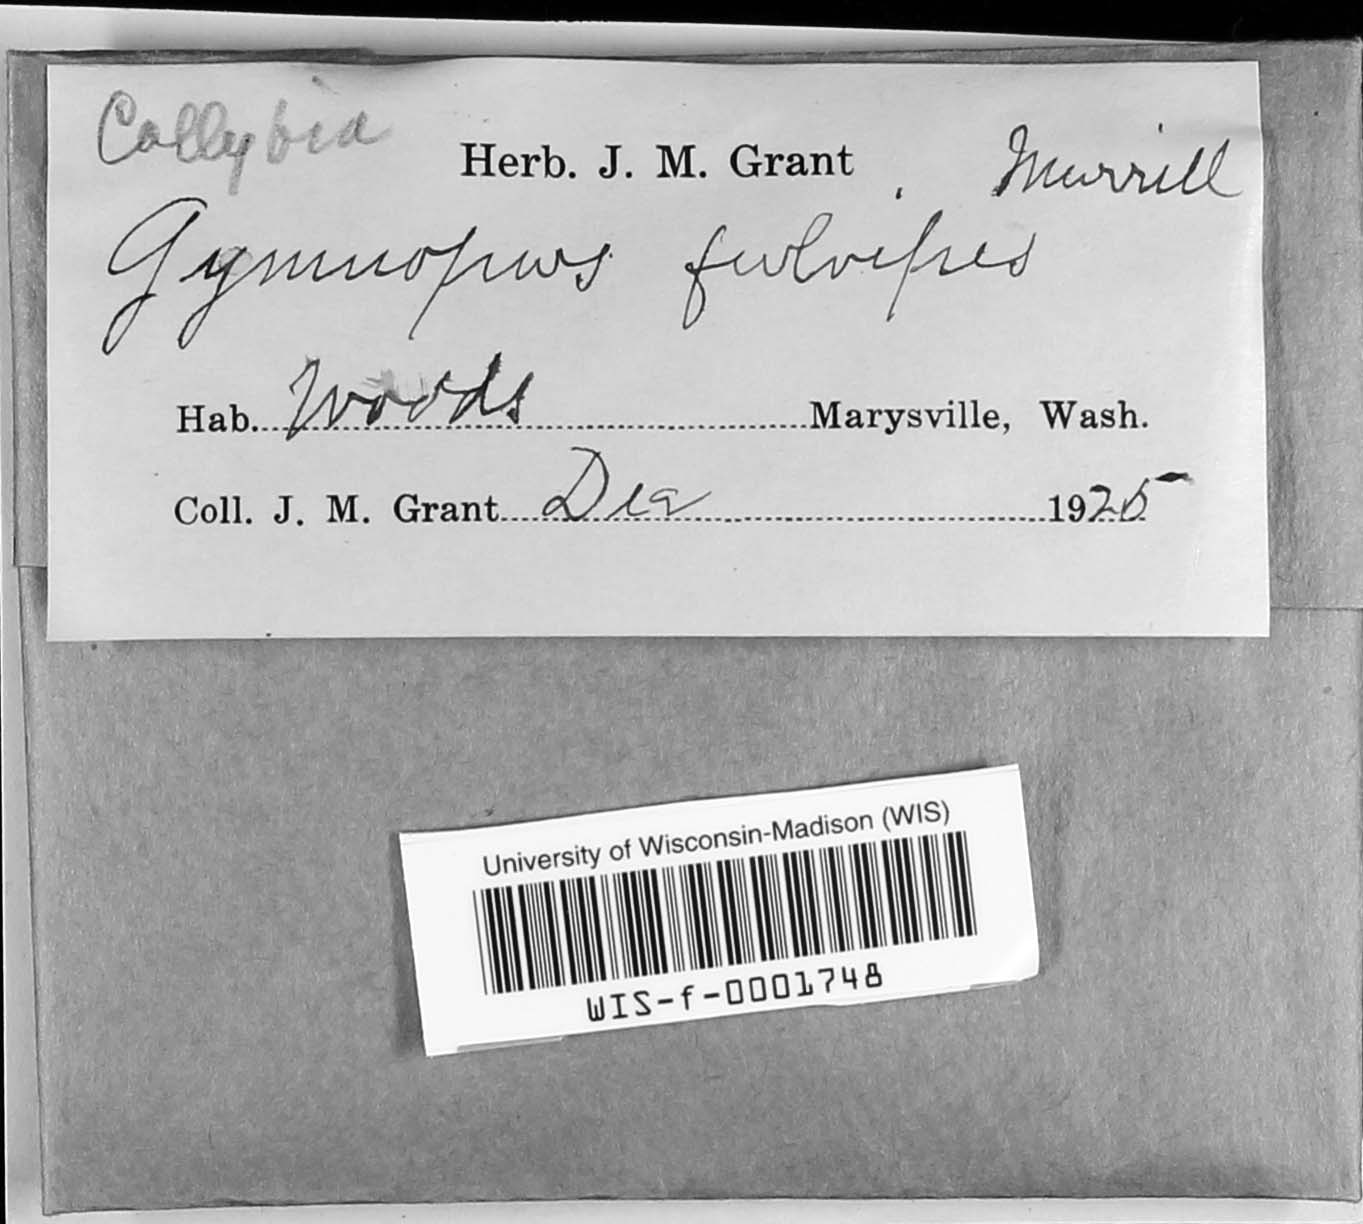 Collybia
Herb. J. M. Grant Murrill
Gymnopus fulvipes
Hab. Woods Marysville, Wash.
Coll. J. M. Grant Dec 1925
University of Wisconsin-Madison (WIS)
WIS-f-0001748